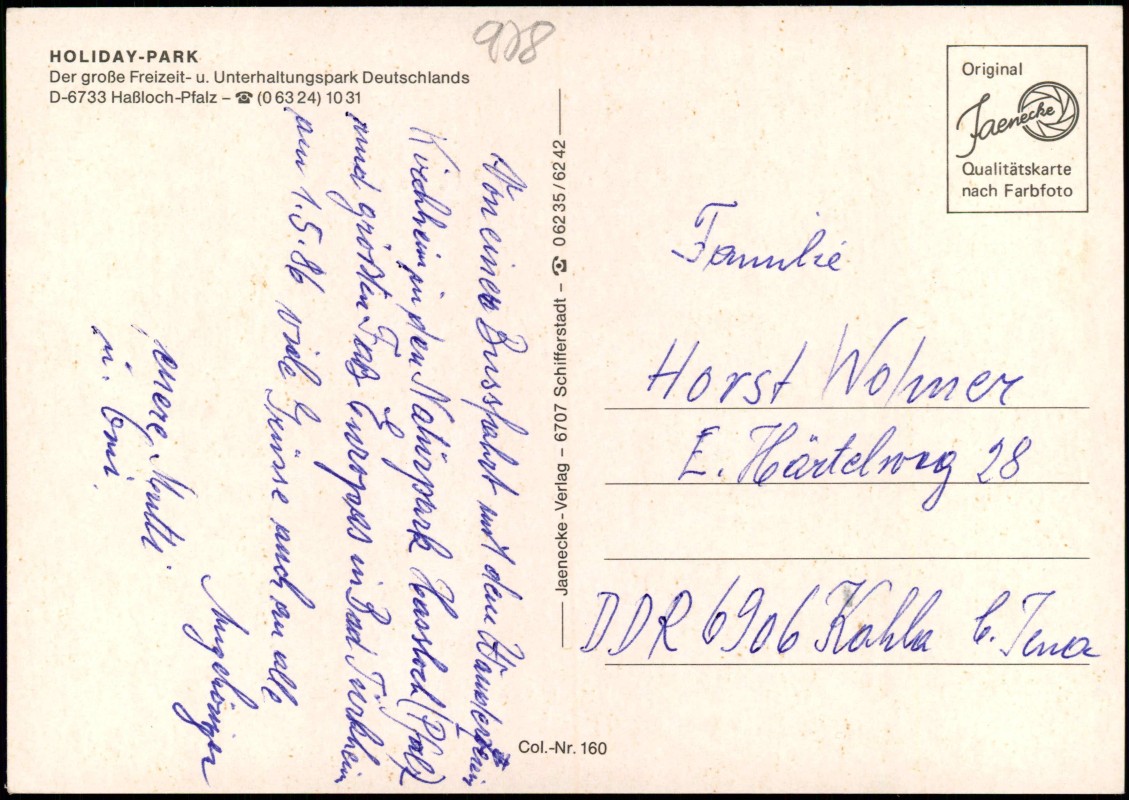 HOLIDAY-PARK
Der große Freizeit- u. Unterhaltungspark Deutschlands
D-6733 Haßloch-Pfalz – ☎ (0 63 24) 10 31
978
Original
Jaenecke
Qualitätskarte
nach Farbfoto
Von einer Bussfahrt mit dem
Kirchheim in den Naturpark Hassloch (Pfalz)
und größten Faß Europas in Bad Tuerkheim
am 1.5.86 viele Grüsse auch an alle
Angehöriger
Mutti
u. Omi
Jaenecke-Verlag – 6707 Schifferstadt – ☎ 0 62 35 / 62 42
Familie
Horst Wohner
E. Härtelweg 28
DDR 6906 Kahla b. Jena
Col.-Nr. 160